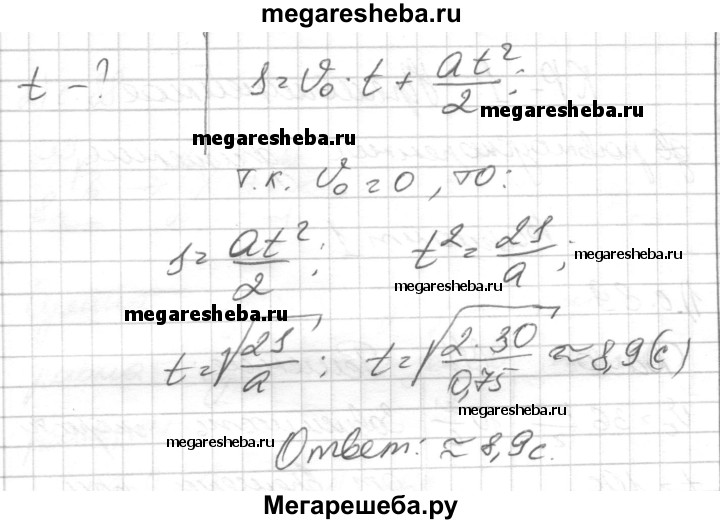 megaresheba.ru
t - ? s = v₀ · t + at²/2;
megaresheba.ru
т.к. v₀ = 0, то:
s = at²/2; t² = 2s/a;
megaresheba.ru
megaresheba.ru
megaresheba.ru
t = √(2s/a); t = √(2·30/0,75) ≈ 8,9 (с)
megaresheba.ru
megaresheba.ru
Ответ: ≈ 8,9 с.
Мегарешеба.ру